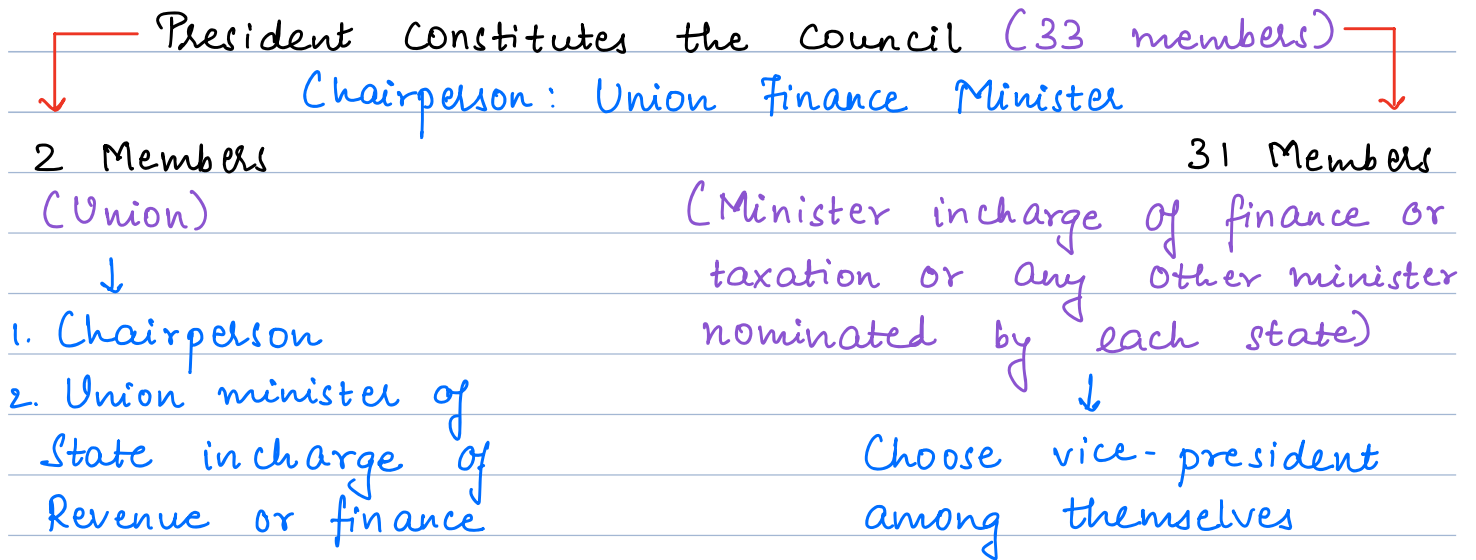 President constitutes the council (33 members)
Chairperson: Union Finance Minister
2 Members
(Union)
↓
1. Chairperson
2. Union minister of
State incharge of
Revenue or finance
31 Members
(Minister incharge of finance or
taxation or any other minister
nominated by each state)
↓
Choose vice-president
among themselves